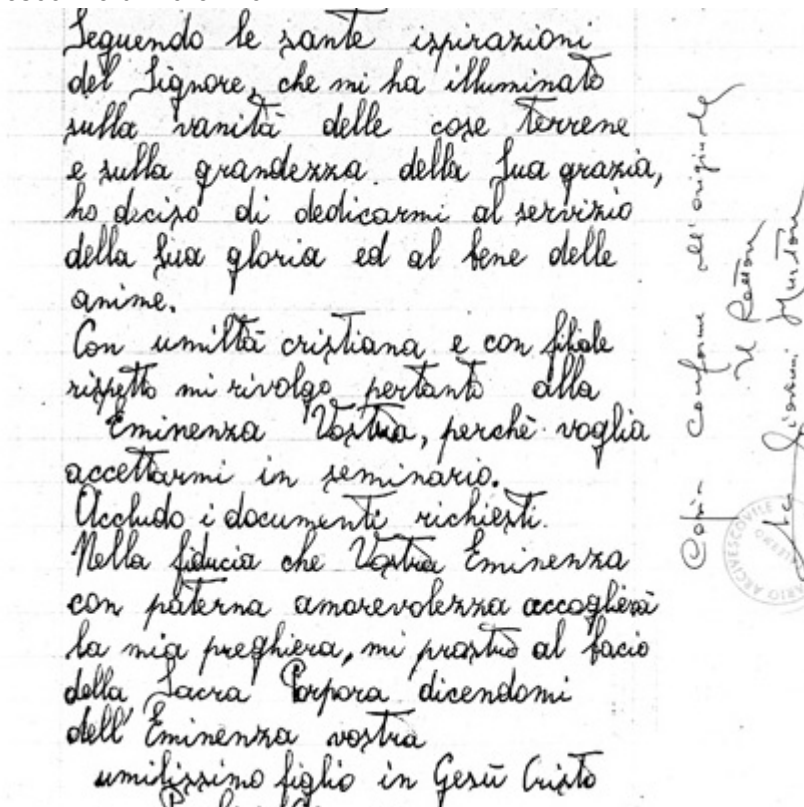 Seguendo le sante ispirazioni
del Signore, che mi ha illuminato
sulla vanità delle cose terrene
e sulla grandezza della Sua grazia,
ho deciso di dedicarmi al servizio
della Sua gloria ed al bene delle
anime.
Con umiltà cristiana e con filiale
rispetto mi rivolgo pertanto alla
Eminenza Vostra, perchè voglia
accettarmi in seminario.
Accludo i documenti richiesti.
Nella fiducia che Vostra Eminenza
con paterna amorevolezza accoglierà
la mia preghiera, mi prostro al bacio
della Sacra Porpora dicendomi
dell'Eminenza vostra
umilissimo figlio in Gesù Cristo
Copia conforme all'originale
Il Rettore
Giovanni
ARCIVESCOVILE